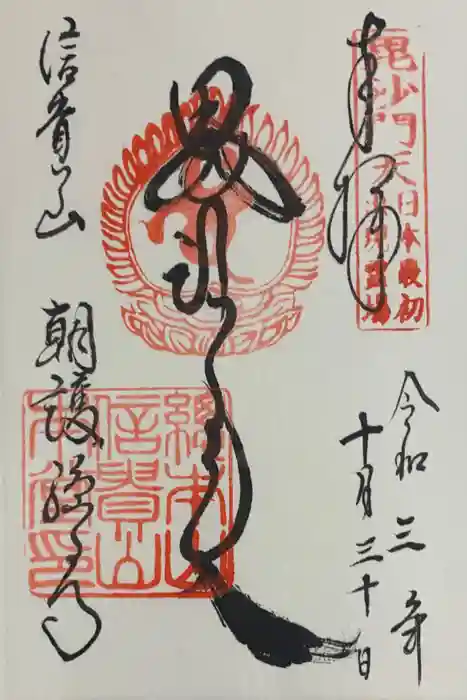 奉拝
毘沙門天日本最初出現霊場
令和三年
十月三十日
信貴山
朝護孫子寺
總本山
信貴山